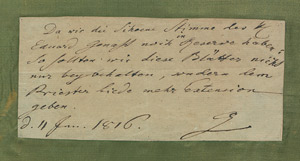 Da wir die Schoene Stimme des H
Eduard Genast noch in Reserve haben;
So sollten wir diese Blätter nicht
nur beybehalten, sondern dem
Priester liede mehr Extension
geben.
d. 11 Jun. 1816. G